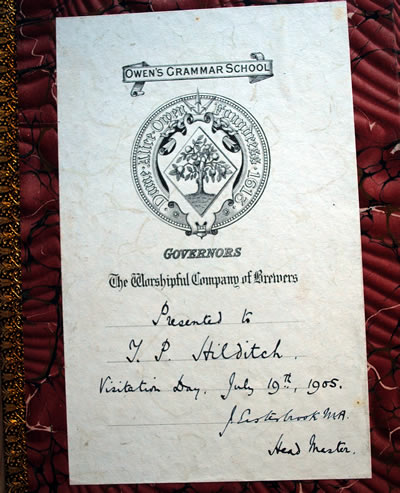 OWEN'S GRAMMAR SCHOOL
Dame · Alice · Owen · Foundress · 1613 ·
GOVERNORS
The Worshipful Company of Brewers
Presented to
T. P. Hilditch.
Visitation Day, July 19th, 1905.
J. Easterbrook M.A.
Head Master.